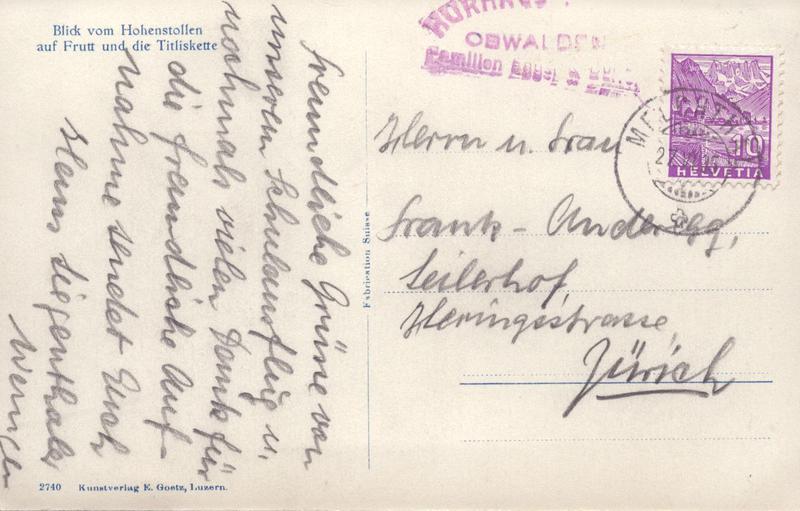 Blick vom Hohenstollen
auf Frutt und die Titliskette
freundliche Grüsse von
unserem Schulausflug u.
nochmals vielen Dank für
die freundliche Auf-
nahme sendet Euch
Heini Siegenthaler
2740 Kunstverlag E. Goetz, Luzern.
Fabrication Suisse
OBWALDEN
Familien
MELCHTH
10
HELVETIA
Herrn u. Frau
Frank-Anderegg,
Seilerhof
Heringsstrasse,
Zürich